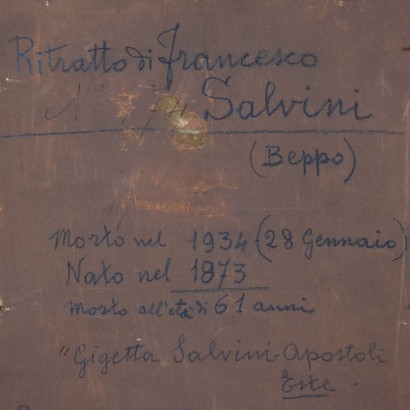 Ritratto di Francesco
Salvini
(Beppo)
Morto nel 1934 (28 Gennaio)
Nato nel 1873
Morto all'età di 61 anni
"Gigetta Salvini-Apostoli
Este.